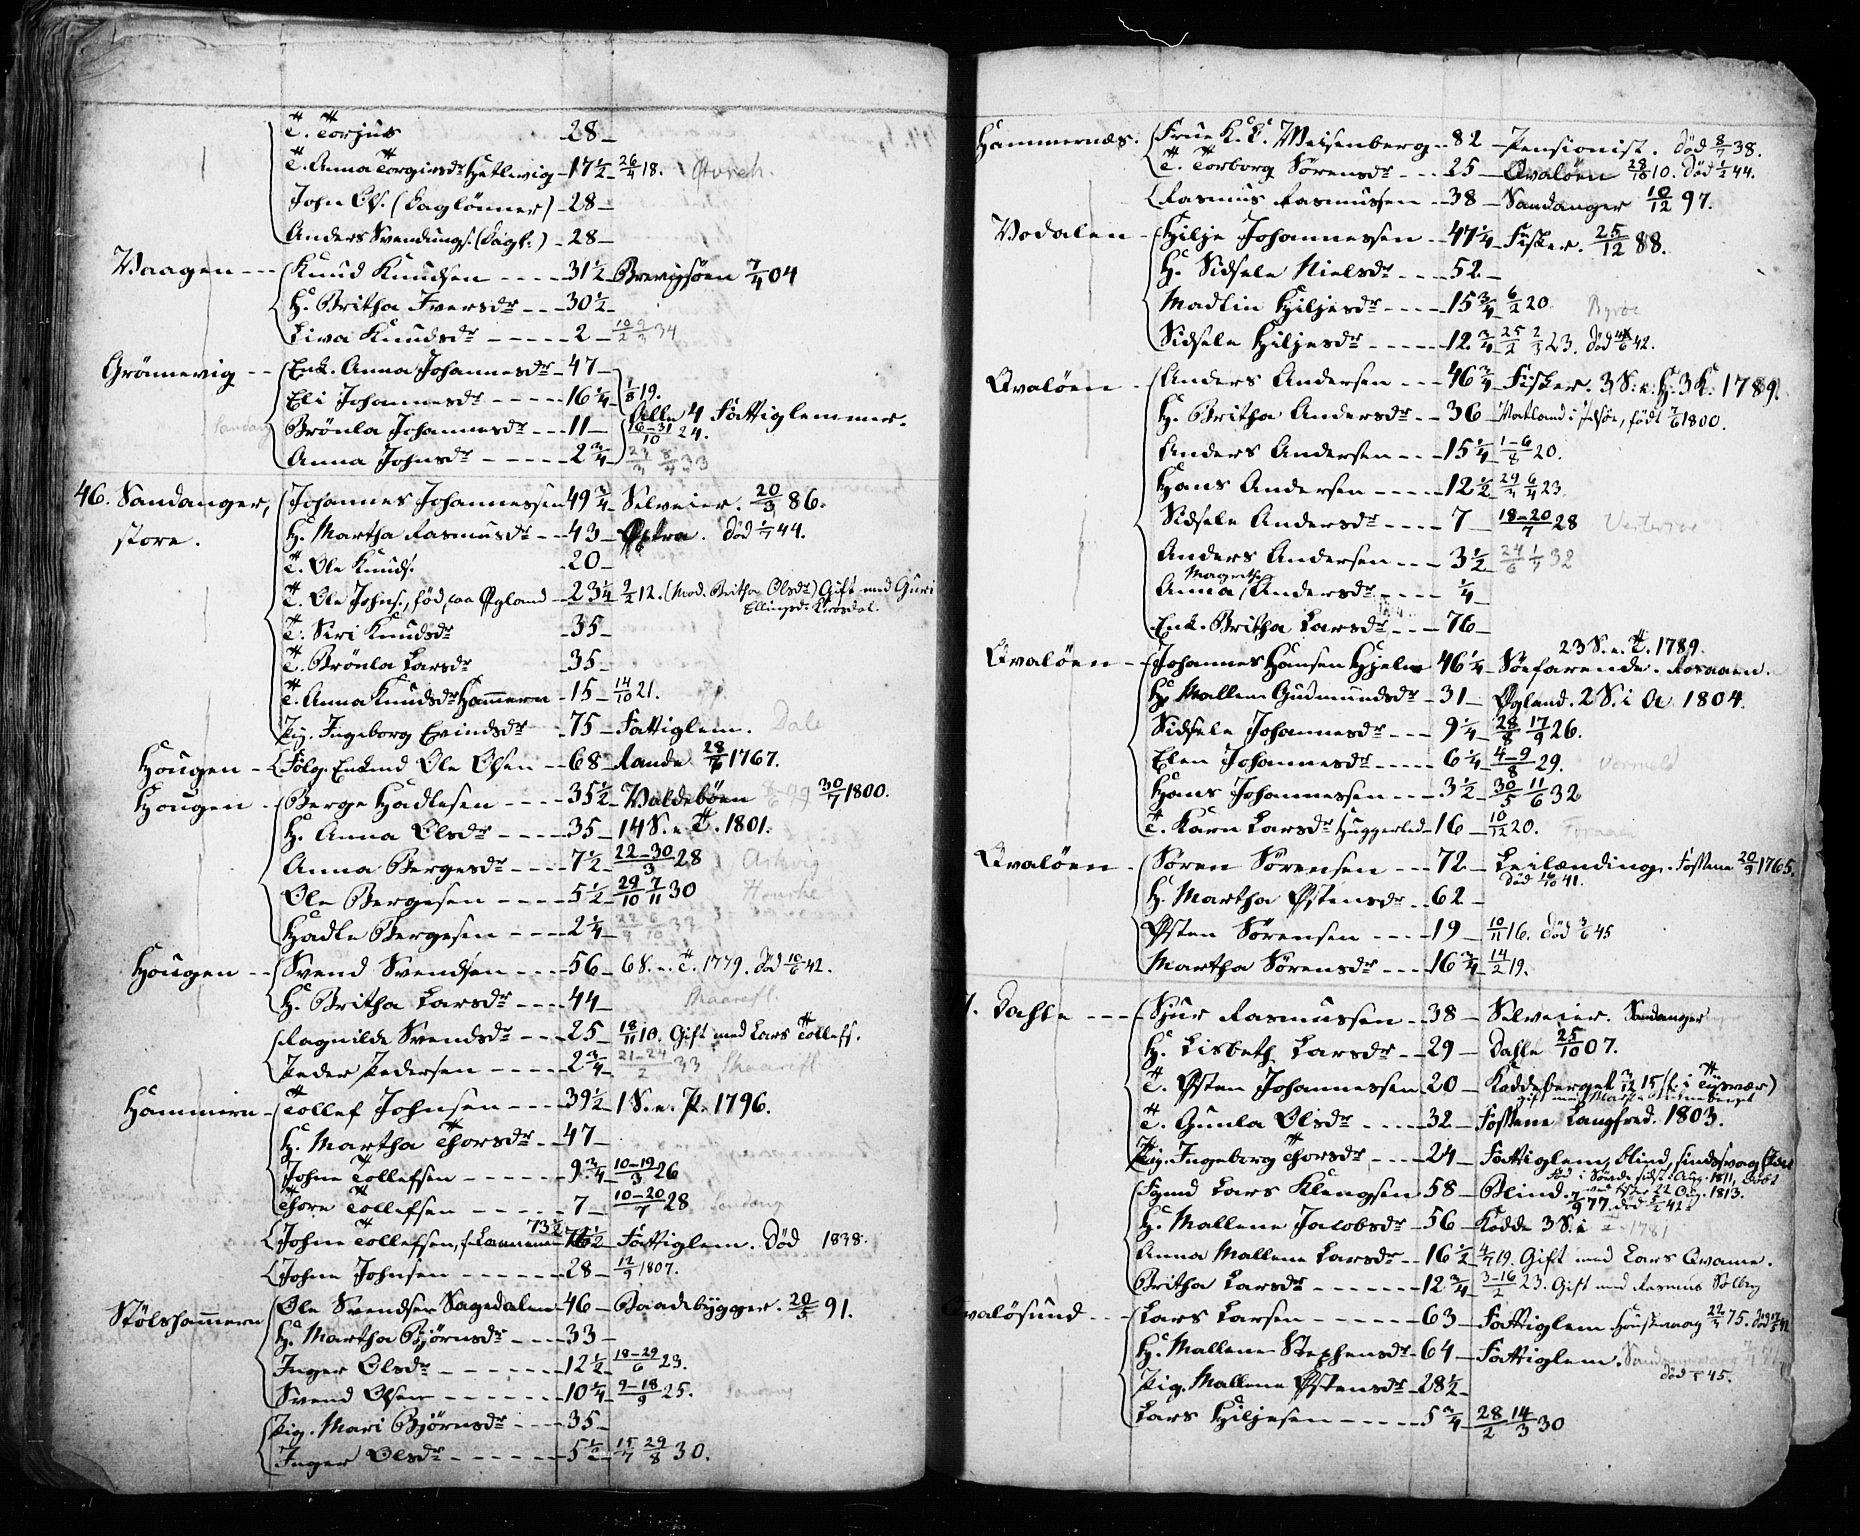 T. Torjus 28
T. Anna Torgirsdr Hetlevig 17 1/2 26/4 18.
John Ol. (Daglønner) 28
Anders Svendungs. (Dagl.) 28
Vaagen Knud Knudsen 31 1/2 Brevigsøen 7/4 04
H. Britha Iversdr 30 1/2
Liva Knudsdr 2 10/2 2/3 34
Grönnevig Enk. Anna Johannesdr 47
Eli Johannesdr 16 1/4 1/8 19.
Alle 4 Fattiglemmer.
Brönla Johannesdr 11 16-31/10 24.
Anna Johnsdr 2 3/4 33
46. Sandanger, Johannes Johannessen 49 3/4 Selveier. 20/3 86.
store. H. Martha Rasmusdr 43 Østra. Död 1/7 44.
T. Ole Knuds. 20
T. Ole Johns., föd paa Øgland 23 1/4 2/2 12. (Mod. Britha Olsdr) Gift med Guri
Ellingsdr.
T. Siri Knudsdr 35
T. Brönla Larsdr 35
T. Anna Knudsdr Hammern 15 14/10 21.
Pig. Ingeborg Evindsdr 75 Fattiglem. Dale
Hougen Folg. Enkmd Ole Olsen 68 Rande 28/6 1767.
Hougen Berge Hadlesen 35 1/2 Valdebøen 30/7 1800.
H. Anna Olsdr 35 14 S. e. T. 1801.
Anna Bergesdr 7 1/2 22-30/3 28
Ole Bergesen 5 1/2 29/10 7/11 30
Hadle Bergesen 2 1/4
Hougen Svend Svendsen 56 6 S. e. T. 1779. Död 10/6 42.
H. Britha Larsdr 44
Ragnilde Svendsdr 25 18/11 10. Gift med Lars Tollefs.
Peder Pedersen 2 3/4 21-24/2 33
Hammern Tollef Johnsen 39 1/2 1 S. e. P. 1796.
H. Martha Thorsdr 47
Johne Tollefsen 9 3/4 10-19/3 26
Thore Tollefsen 7 10-20/7 28
Johne Tollefsen, 73 1/2 Fattiglem. Död 1838.
Johne Johnsen 28 12/9 1807.
Stölshammern Ole Svendsen Sagedalen 46 Baadebygger. 20/5 91.
H. Martha Björnsdr 33
Inger Olsdr 12 1/2 18-29/6 23.
Svend Olsen 10 1/4 9-18/9 25.
Pig. Mari Björnsdr 35
Inger Olsdr 5 1/2 15/7 29/8 30.
Hammernæs. Frue K. L. Meisenberg 82 Pensionist. Död 8/7 38.
T. Torborg Sørensdr 25 Qvaløen 28/10 10. Död 1/2 44.
Rasmus Rasmussen 38 Sandanger 10/12 97.
Vodalen Hilje Johannessen 47 1/4 Fisker. 25/12 88.
H. Sidsele Nielsdr 52
Madlin Hiljesdr 15 3/4 6/2 20
Sidsele Hiljesdr 12 3/4 25/2 2/3 23. Död 42.
Qvaløen Anders Andersen 46 3/4 Fisker. 3 S. e. H. 3 K. 1789.
H. Britha Andersdr 36 Vatland i födt 7/6 1800.
Anders Andersen 15 1/4 1-6/8 20.
Hans Andersen 12 1/2 29/3 6/4 23
Sidsele Andersdr 7 18-20/7 28
Anders Andersen 3 1/2 24/6 1/7 32
Magrethe
Anna Andersdr 1/4
Enk. Britha Larsdr 76
23 S. e. T. 1789.
Qvaløen Johannes Hansen Hjelm 46 1/4 Søefarende.
H. Mallene Gudmundsdr 31 Øgland. 2 S. i A. 1804.
Sidsele Johannesdr 9 1/4 28/8 17/9 26.
Elen Johannesdr 6 1/4 4-9/8 29.
Hans Johannessen 3 1/2 30/5 11/6 32
T. Karn Larsdr Huggerled 16 10/12 20.
Qvaløen Sören Sörensen 72 Leilænding. Fosene 20/9 1765.
Död 41.
H. Martha Østensdr 62
Østen Sörensen 19 10/11 16. Död 3/6 45
Martha Sörensdr 16 3/4 14/2 19.
7. Dahle Sjur Rasmussen 38 Selveier. Sandanger
H. Lisbeth Larsdr 29 Dahle 25/10 07.
T. Østen Johannessen 20 Koddeberget 3/12 15 (f. i Tysvær)
T. Gunla Olsdr 32 Fosene Langfred. 1803.
Pig. Ingeborg Thorsdr 24 Fattiglem, blind, sindssvag
1811, döbt
Fgmd Lars Klengsen 58 Blind. 22 Aug. 1813.
7/9 77. Död 42.
H. Mallene Jacobsdr 56 Kodde 3 S. i 1781
Anna Mallene Larsdr 16 1/2 4/7 19. Gift med Lars Qvame.
Britha Larsdr 12 3/4 3-16/2 23. Gift med Rasmus Solberg
Qvalösund Lars Larsen 63 Fattiglem 75.
H. Mallene Stephensdr 64 Fattiglem.
Död 45.
Pig. Mallene Østensdr 28 1/2
Lars Hiljesen 5 3/4 28/2 14/3 30